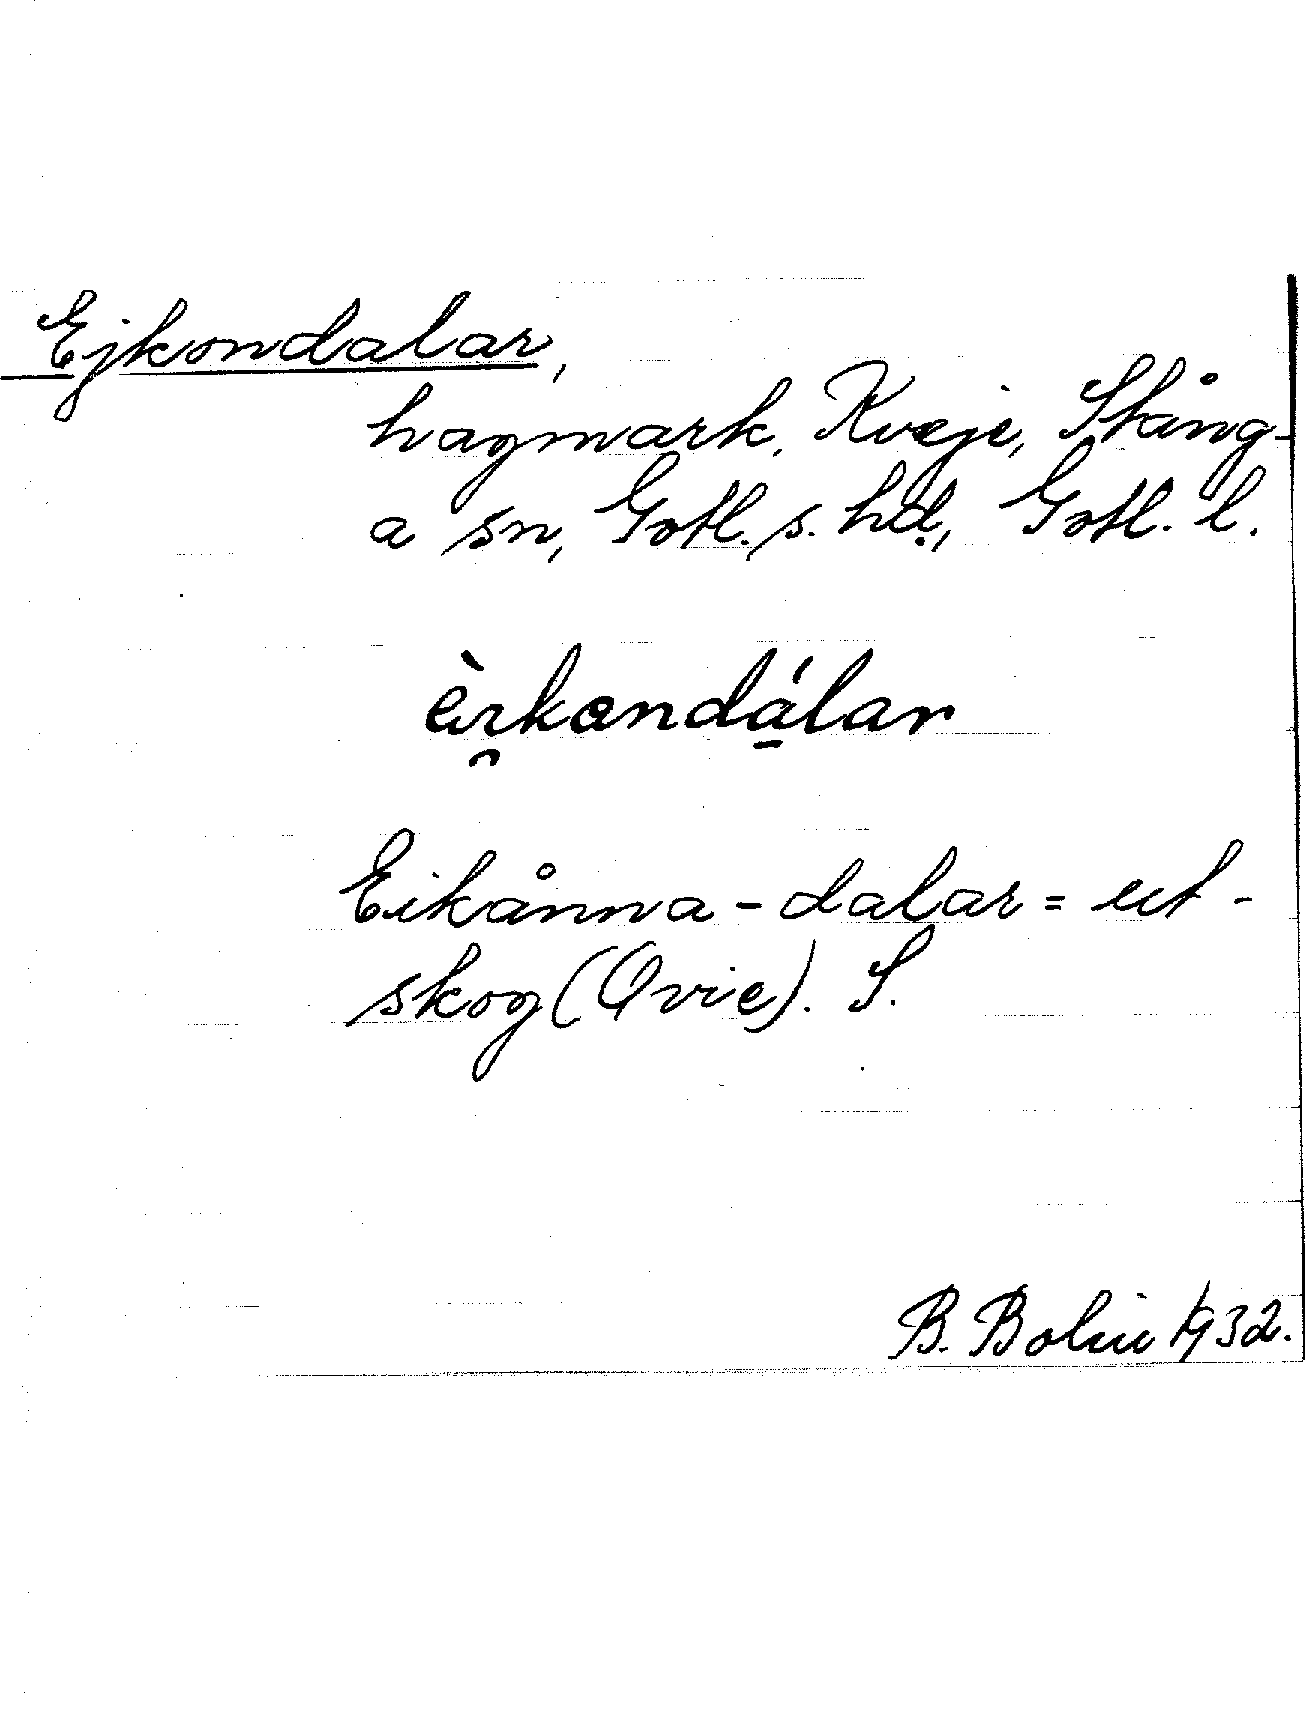 Ejkondalar,
hagmark, Kveje, Stång-
a sn, Gotl. s. hd., Gotl. l.
Eikånna-dalar = ut-
skog (Qvie). S.
B. Bolin 1932.